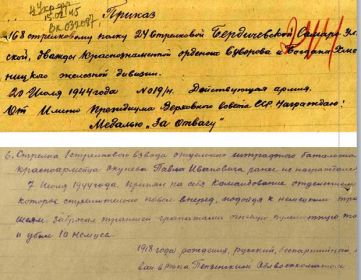 Приказ
168 стрелковому полку 24 стрелковой Бердичевской Самаро-Ул
ской, дважды Краснознаменной орденов Суворова и Богдана Хме
ницкого железной дивизии.
20 Июля 1944 года № 019/н. Действующая армия.
От Имени Президиума Верховного Совета СССР Награждаю!
Медалью „За Отвагу"
6. Стрелка 1 стрелкового взвода отдельного штрафного батальона
красноармейца Окунева Павла Ивановича ранее не награждался
7 Июля 1944 года. Принял на себя командование отделением
которое стремительно повел вперед, подойдя к немецким тран
шеям забросал траншеи гранатами
и убил 10 немцев.
1918 года рождения, русский, беспартийный,
ван Пензенским Облвоенкоматом